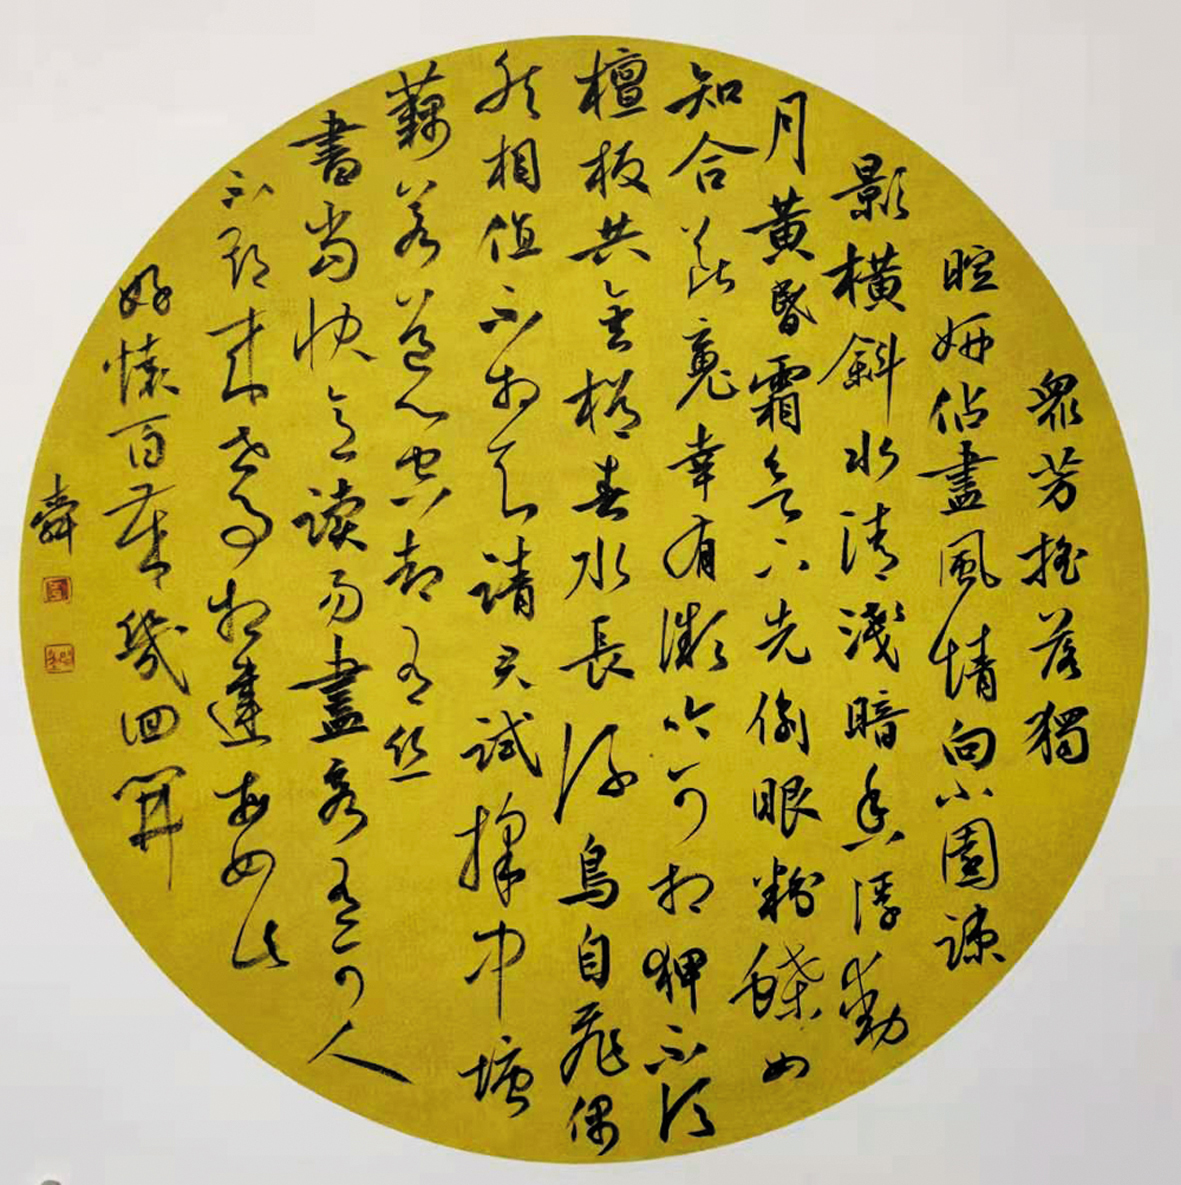 眾芳搖落獨
暄妍佔盡風情向小園疎
影橫斜水清淺暗香浮動
月黃昏霜禽下先偷眼粉蝶如
知合斷魂幸有微吟可相狎不須
檀板共金樽春水長流鳥自飛偶
然相值不相知請君試採中塘
藕若道心空卻有絲
書當快意讀易盡客有可人
不期來世事相違每如此
好懷百歲幾回開
舜